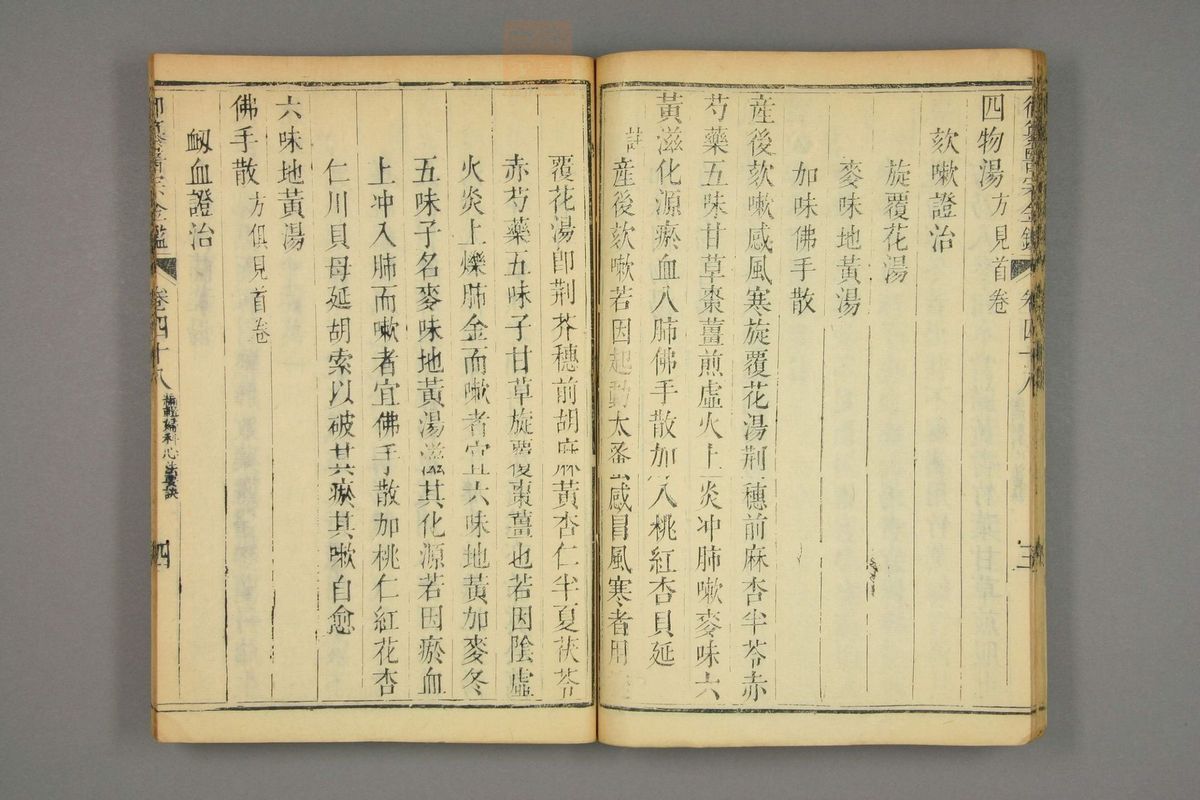 四物湯方見首卷
欬嗽證治
旋覆花湯
麥味地黃湯
加味佛手散
産後欬嗽感風寒旋覆花湯荆穗前麻杏半苓赤
芍藥五味甘草棗薑煎虛火上炎冲肺嗽麥味六
黃滋化源瘀血入肺佛手散加入桃紅杏貝延
註産後欬嗽若因起動太早感冒風寒者用
覆花湯卽荆芥穗前胡麻黃杏仁半夏茯苓
赤芍藥五味子甘草旋覆棗薑也若因陰虛
火炎上爍肺金而嗽者宜六味地黃加麥冬
五味子名麥味地黃湯滋其化源若因瘀血
上冲入肺而嗽者宜佛手散加桃仁紅花杏
仁川貝母延胡索以破其瘀其嗽自愈
六味地黃湯
佛手散方俱見首卷
衂血證治
御纂醫宗金鑑 卷四十八 編輯婦科心法要訣 四